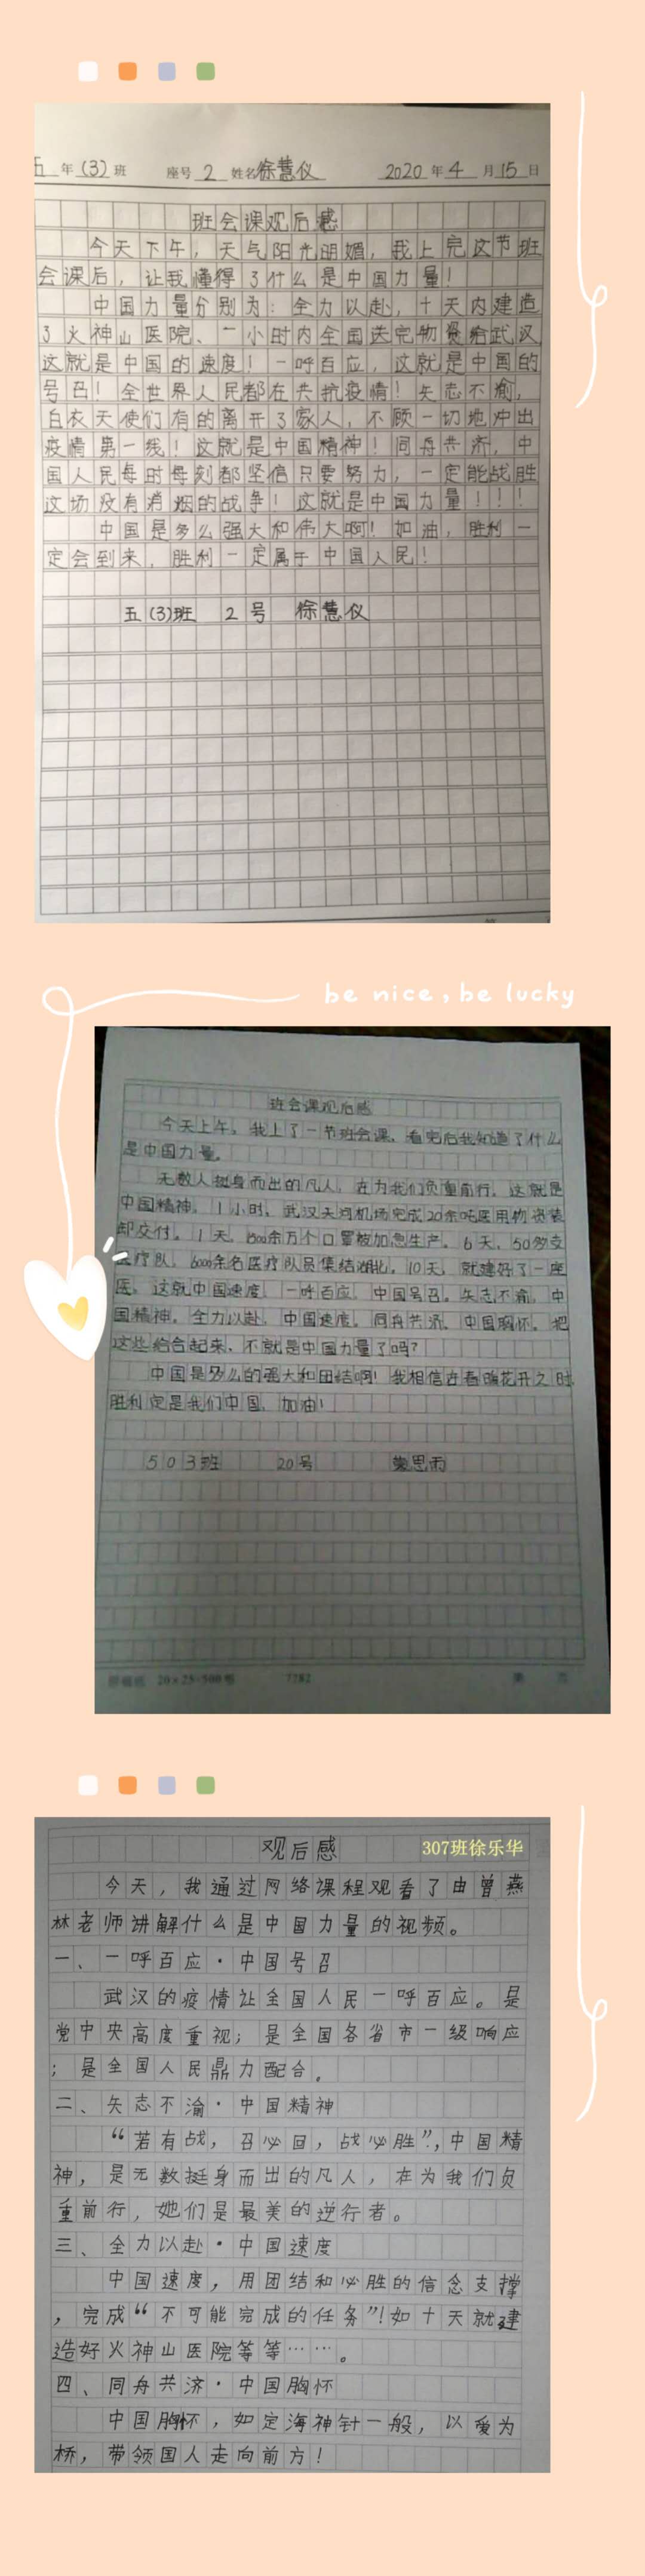 五年(3)班 座号 2 姓名 徐慧仪 2020年4月15日
班会课观后感
今天下午，天气阳光明媚，我上完这节班
会课后，让我懂得了什么是中国力量！
中国力量分别为：全力以赴，十天内建造
了火神山医院、一小时内全国送完物资给武汉
这就是中国的速度！一呼百应，这就是中国的
号召！全世界人民都在共抗疫情！矢志不渝，
白衣天使们有的离开了家人，不顾一切地冲出
疫情第一线！这就是中国精神！同舟共济，中
国人民每时每刻都坚信只要努力，一定能战胜
这场没有消烟的战争！这就是中国力量！！！
中国是多么强大和伟大啊！加油，胜利一
定会到来，胜利一定属于中国人民！
五(3)班 2号 徐慧仪
be nice, be lucky
班会课观后感
今天上午，我上了一节班会课，看完后我知道了什么
是中国力量。
无数人挺身而出的凡人，在为我们负重前行，这就是
中国精神。1小时，武汉天河机场完成20余吨医用物资装
卸交付。1天，余万个口罩被加急生产。6天，50多支
医疗队，6000余名医疗队员集结湖北。10天，就建好了一座
医，这就中国速度。一呼百应，中国号召。矢志不渝，中
国精神。全力以赴，中国速度。同舟共济，中国胸怀。把
这些结合起来，不就是中国力量了吗？
中国是多么的强大和团结啊！我相信在春暖花开之时，
胜利定是我们中国，加油！
503班 20号 思雨
20×25=500 7782 第 页
观后感 307班徐乐华
今天，我通过网络课程观看了由曾燕
林老师讲解什么是中国力量的视频。
一、一呼百应·中国号召
武汉的疫情让全国人民一呼百应。是
党中央高度重视；是全国各省市一级响应
；是全国人民鼎力配合。
二、矢志不渝·中国精神
“若有战，召必回，战必胜”，中国精
神，是无数挺身而出的凡人，在为我们负
重前行，她们是最美的逆行者。
三、全力以赴·中国速度
中国速度，用团结和必胜的信念支撑
，完成“不可能完成的任务”！如十天就建
造好火神山医院等等……。
四、同舟共济·中国胸怀
中国胸怀，如定海神针一般，以爱为
桥，带领国人走向前方！